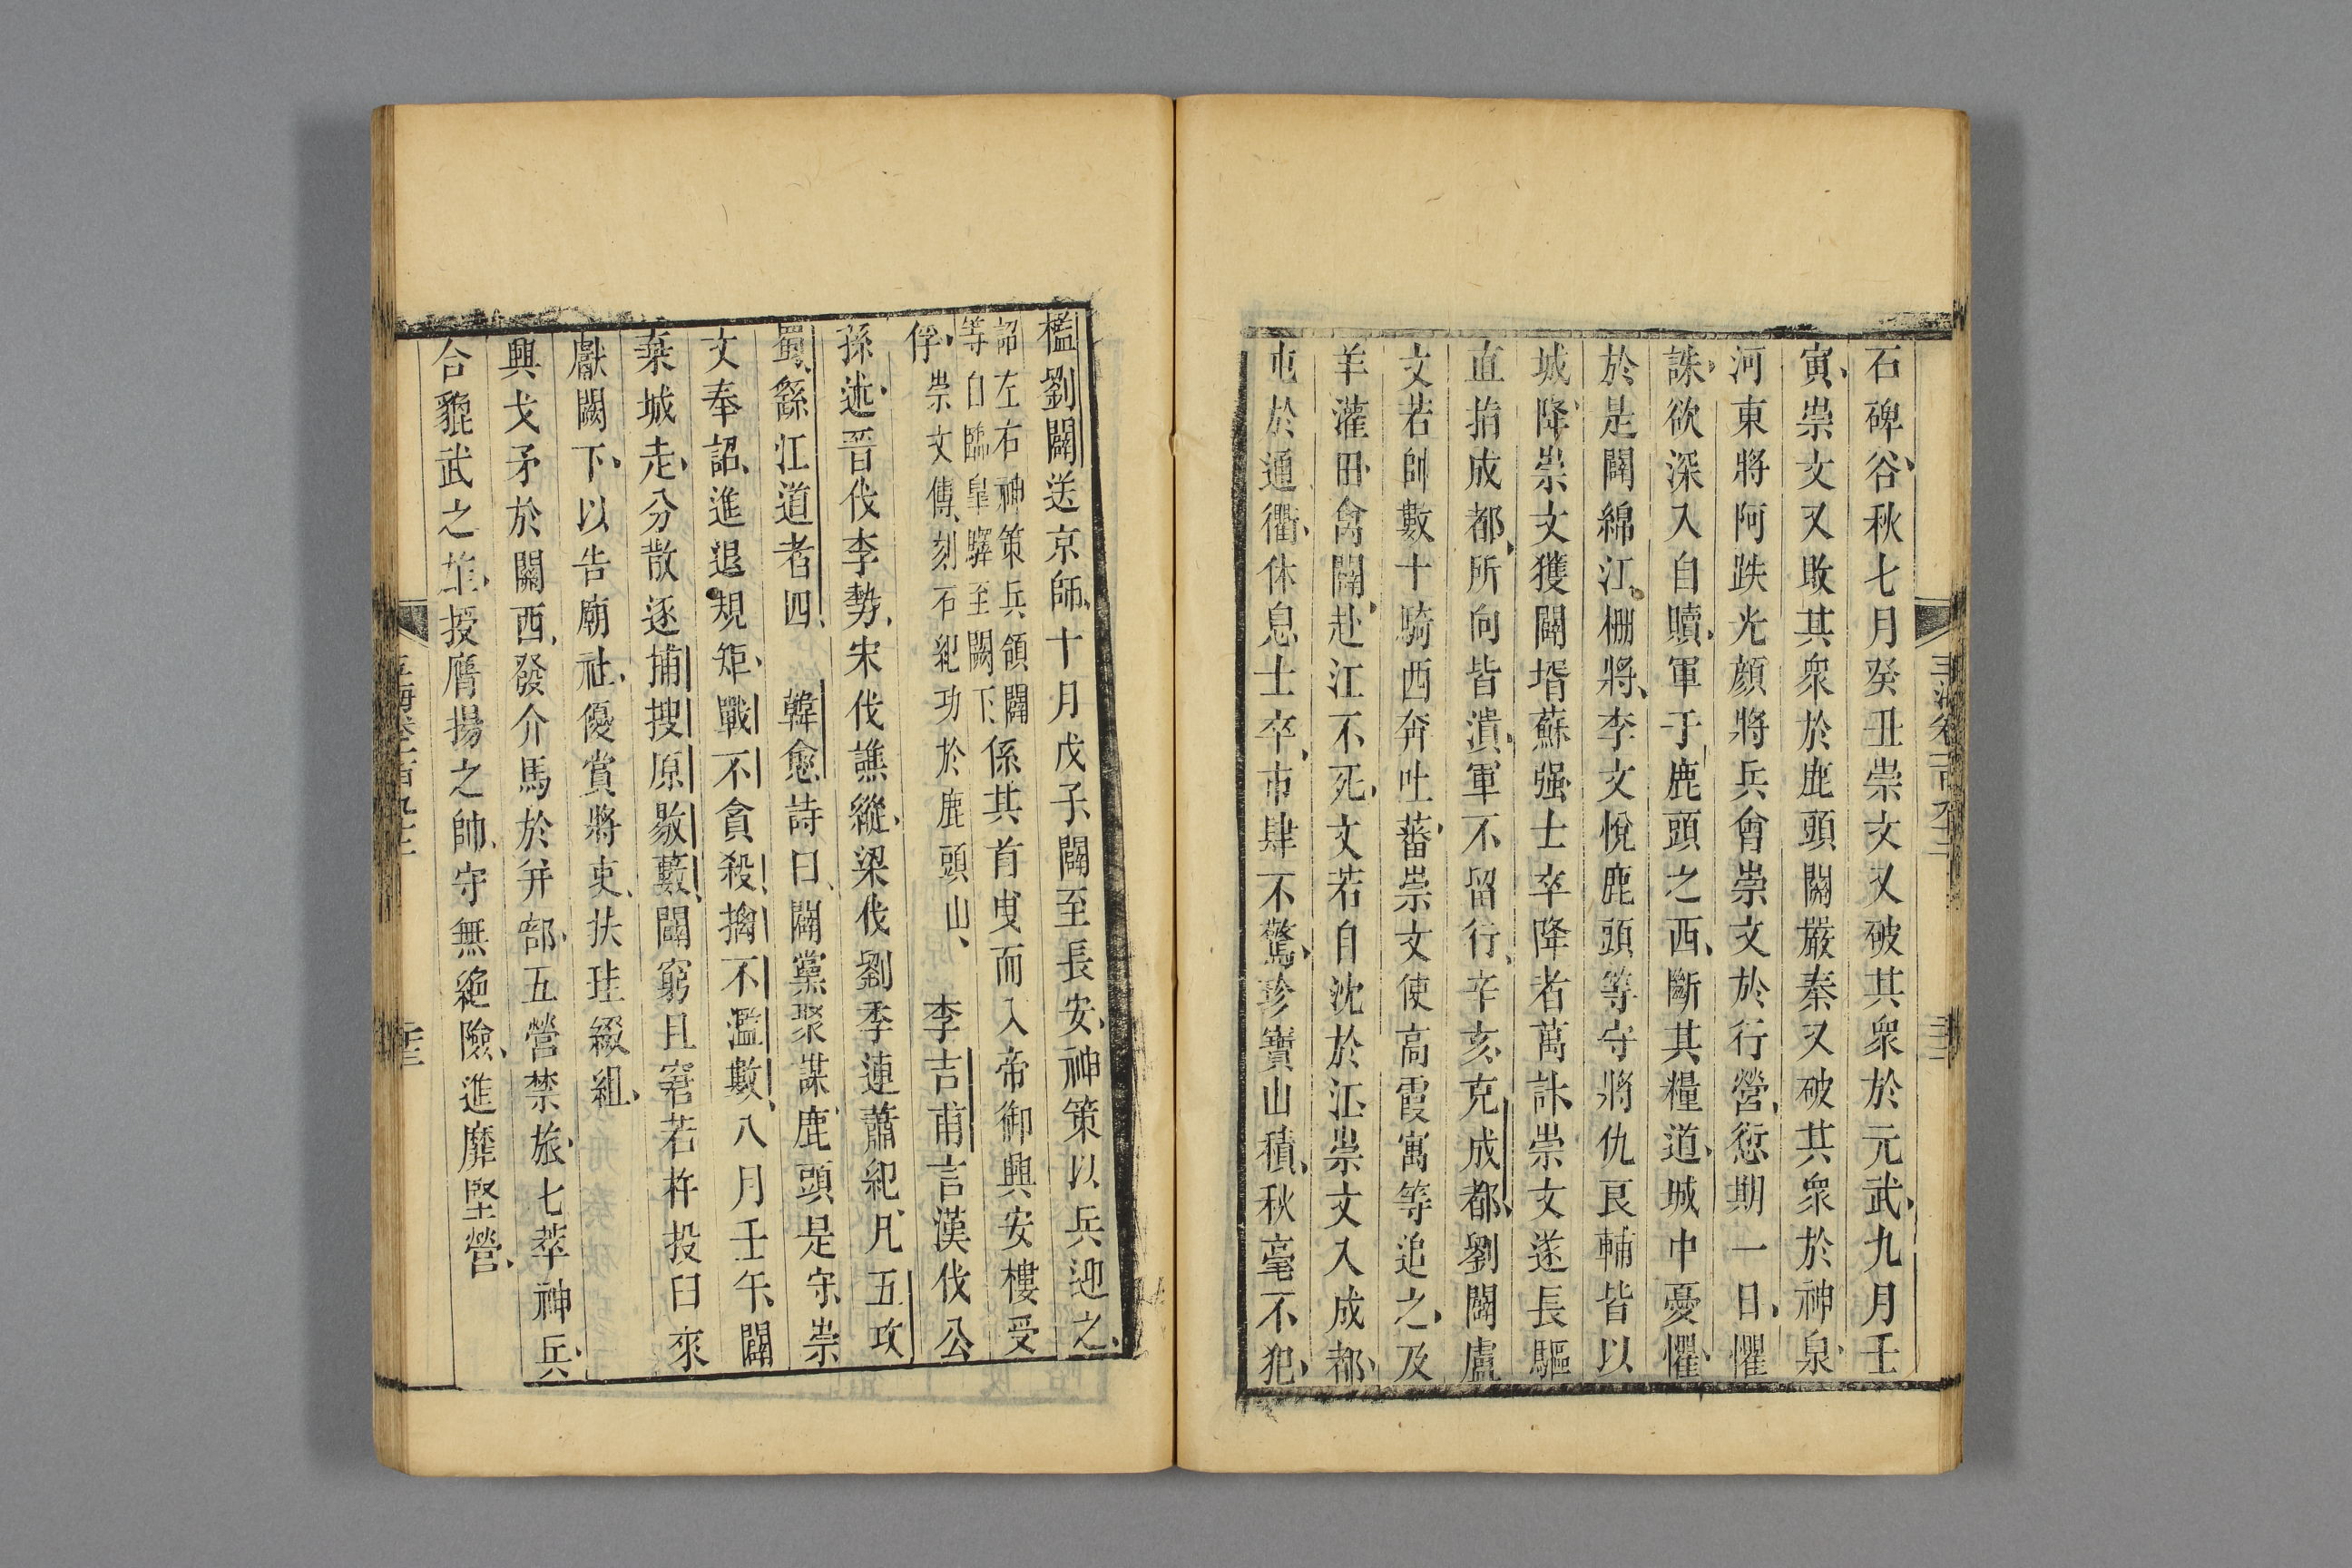 石碑谷秋七月癸丑崇文又破其衆於元武九月壬
寅崇文又敗其衆於鹿頭關嚴秦又破其衆於神泉
河東將阿跌光顔將兵會崇文於行營愆期一日懼
誅欲深入自贖軍于鹿頭之西斷其糧道城中憂懼
於是闢綿江柵將李文悅鹿頭等守將仇良輔皆以
城降崇文獲闢壻蘇强士卒降者萬計崇文遂長驅
直指成都所向皆潰軍不留行辛亥克成都劉闢盧
文若帥數十騎西奔吐蕃崇文使高霞寓等追之及
羊灌田禽闢赴江不死文若自沈於江崇文入成都
屯於通衢休息士卒市肆不驚珍寶山積秋毫不犯
檻劉闢送京師十月戊子闢至長安神策以兵迎之
詔左右神策兵領闢
等自臨皐驛至闕下
係其首曳而入帝御興安樓受
俘崇文傳刻石紀功於鹿頭山 李吉甫言漢伐公
孫述晉伐李勢宋伐譙縱梁伐劉季連蕭紀凡五攻
蜀繇江道者四 韓愈詩曰闢黨聚謀鹿頭是守崇
文奉詔進退規矩戰不貪殺擒不濫數八月壬午闢
棄城走分散逐捕搜原剔藪闢窮且窘若杵投臼來
獻闕下以告廟社優賞將吏扶珪綴組
興戈矛於關西發介馬於幷部五營禁旅七萃神兵
合貔武之雄授膺揚之帥守無絶險進靡堅營